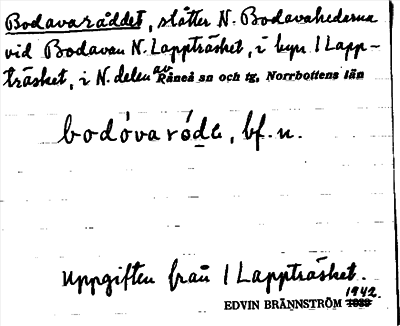 Bodavaråddet, slåtter N. Bodavahedarna
vid Bodavan N. Lappträsket, i byn 1 Lapp-
träsket, i N. delen av Råneå sn och tg, Norrbottens län
bodóvaród̲e, bf. n.
Uppgiften från 1 Lappträsket.
EDVIN BRÄNNSTRÖM 1939 1942.